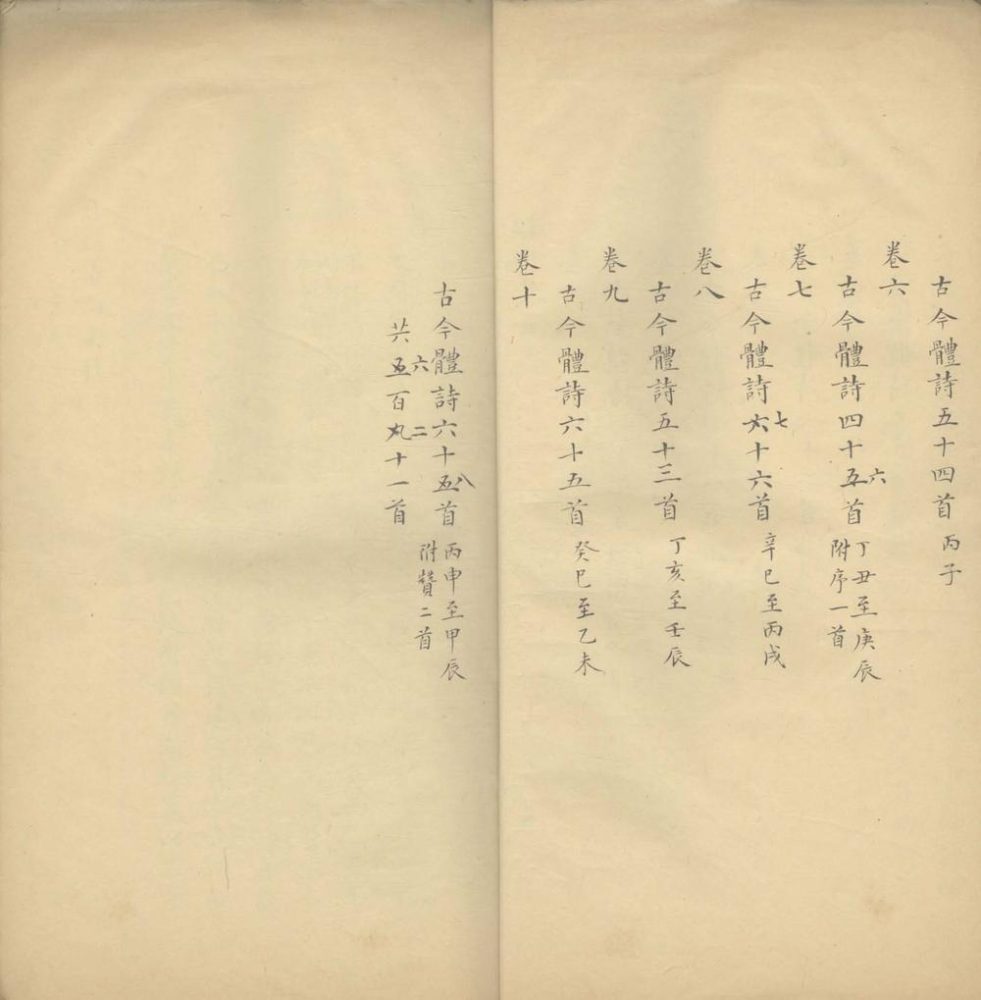 古今體詩五十四首 丙子
卷六
古今體詩四十五六首 丁丑至庚辰
附序一首
卷七
古今體詩六七十六首 辛巳至丙戌
卷八
古今體詩五十三首 丁亥至壬辰
卷九
古今體詩六十五首 癸巳至乙未
卷十
古今體詩六十五八首 丙申至甲辰
附贊二首
共五六百九二十一首